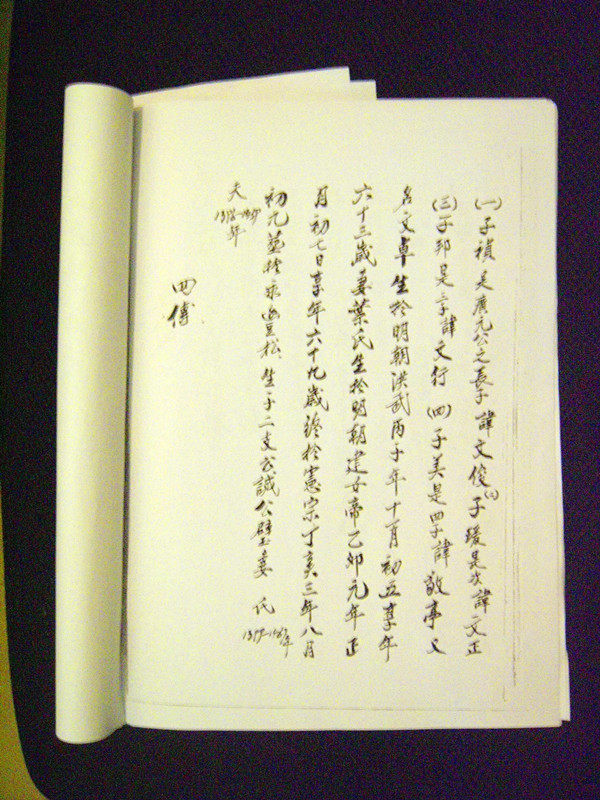 (一)子禎是廣元公之長子諱文俊(二)子瑗是次諱文正
(三)子邦是三子諱文行(四)子美是四子諱敬亭又
名文卓生於明朝洪武丙子年十一月初五享年
六十三歲妻葉氏生於明朝建文帝乙卯元年正
月初七日享年六十九歲終於憲宗丁亥三年八月
初九葬於 松生子二支公誠公壁妻 氏
夫 年
年
四傳